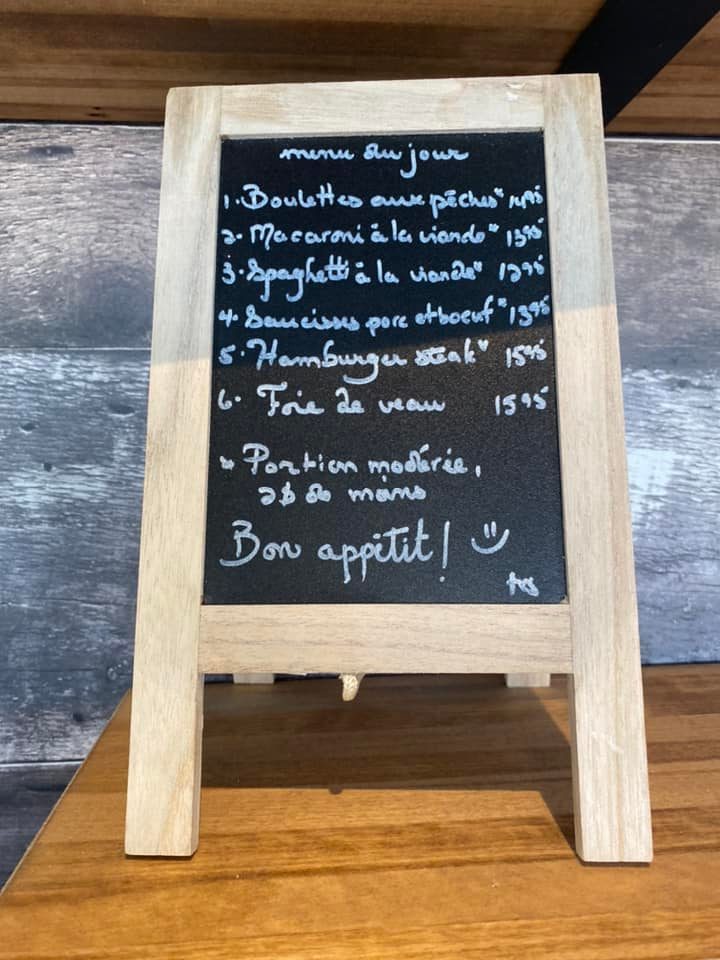 menu du jour
1. Boulettes aux pêches* 14 95
2. Macaroni à la viande* 13 95
3. Spaghetti à la viande* 13 95
4. Saucisses porc et boeuf* 13 95
5. Hamburger steak* 15 95
6. Foie de veau 15 95
* Portion modérée,
2$ de moins
Bon appétit!